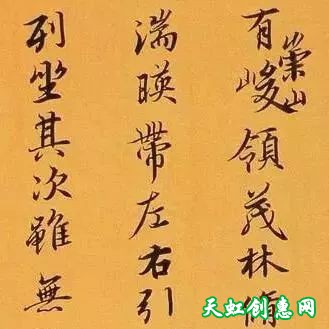 有崇山峻領茂林脩
湍暎帶左右引
列坐其次雖無
天虹创意网